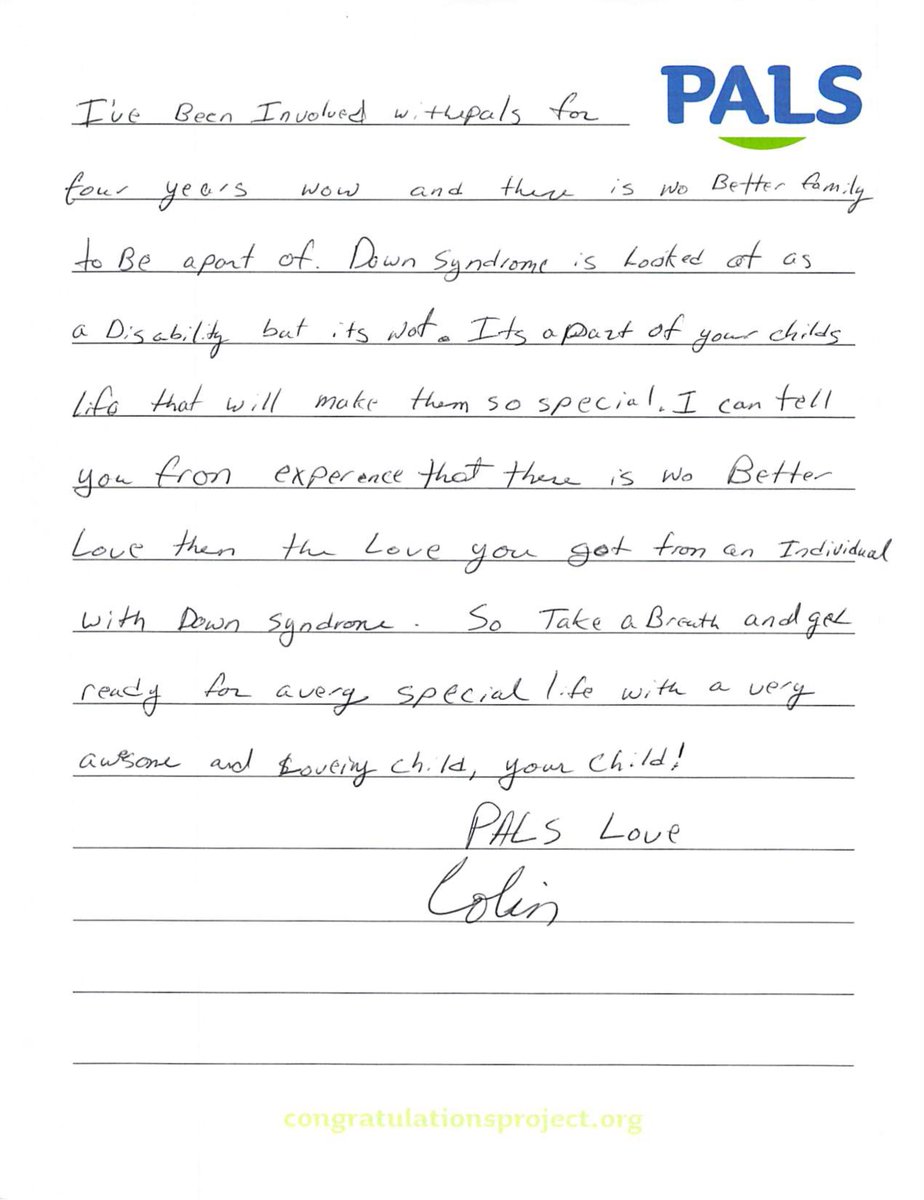 PALS
I've Been Involved with pals for
four years wow and there is no Better family
to Be apart of. Down Syndrome is Looked at as
a Disability but its not. Its a part of your childs
life that will make them so special. I can tell
you fron experence that there is no Better
Love then the Love you get fron an Individual
with Down Syndrone. So Take a Breath and get
ready for a very special life with a very
awsome and Loveing child, your child!
PALS Love
Colin
congratulationsproject.org